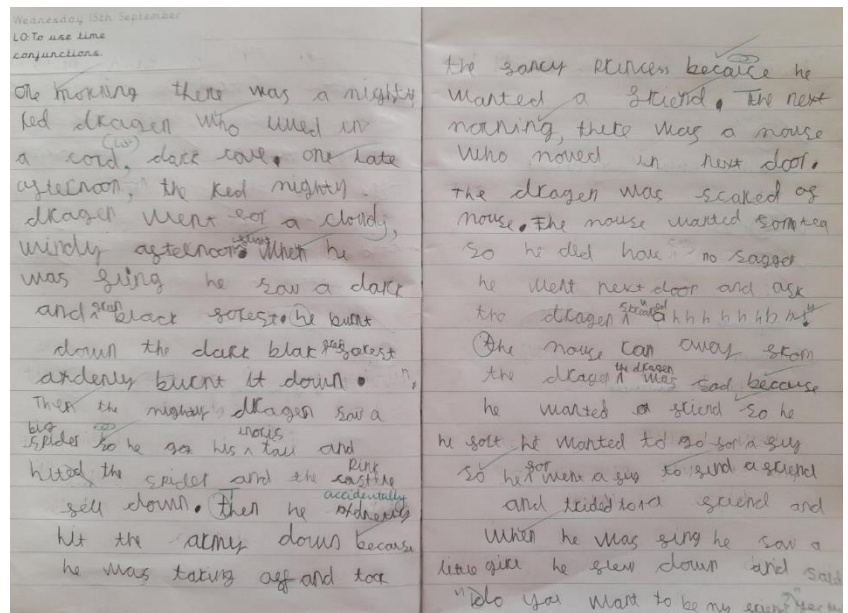 Wednesday 15th September
LO:To use time
conjunctions.
one morning there was a nighty
Red dragen who lived in
a cord, dark cave. one late
afternoon, the Red nighty
dragen went for a cloudy,
windy afternoon. When he
was fling he saw a dark
and black forest. he burnt
down the dark blak forest
burnt it down.
Then the nighty dragen saw a
big
spider so he got his tail and
hited the spider and the Pink
fell down. then he accidentally
hit the army down because
he was taking off and took
the fancy Princess because he
wanted a friend. The next
morning, there was a mouse
who moved in next door.
The dragen was scared of
mouse. The mouse wanted som tea
so he did have no sagger
he went next door and ask
the dragen "ahhhhhh!"
The mouse ran away from
the dragen the dragen was sad because
he wanted a friend so he
he solt he wanted to go for a fuy
so he went a fuy to find a friend
and trided to a friend and
When he was fling he saw a
little girl he flew down and said
"do you want to be my